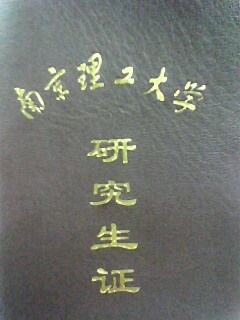 南京理工大学
研究生证